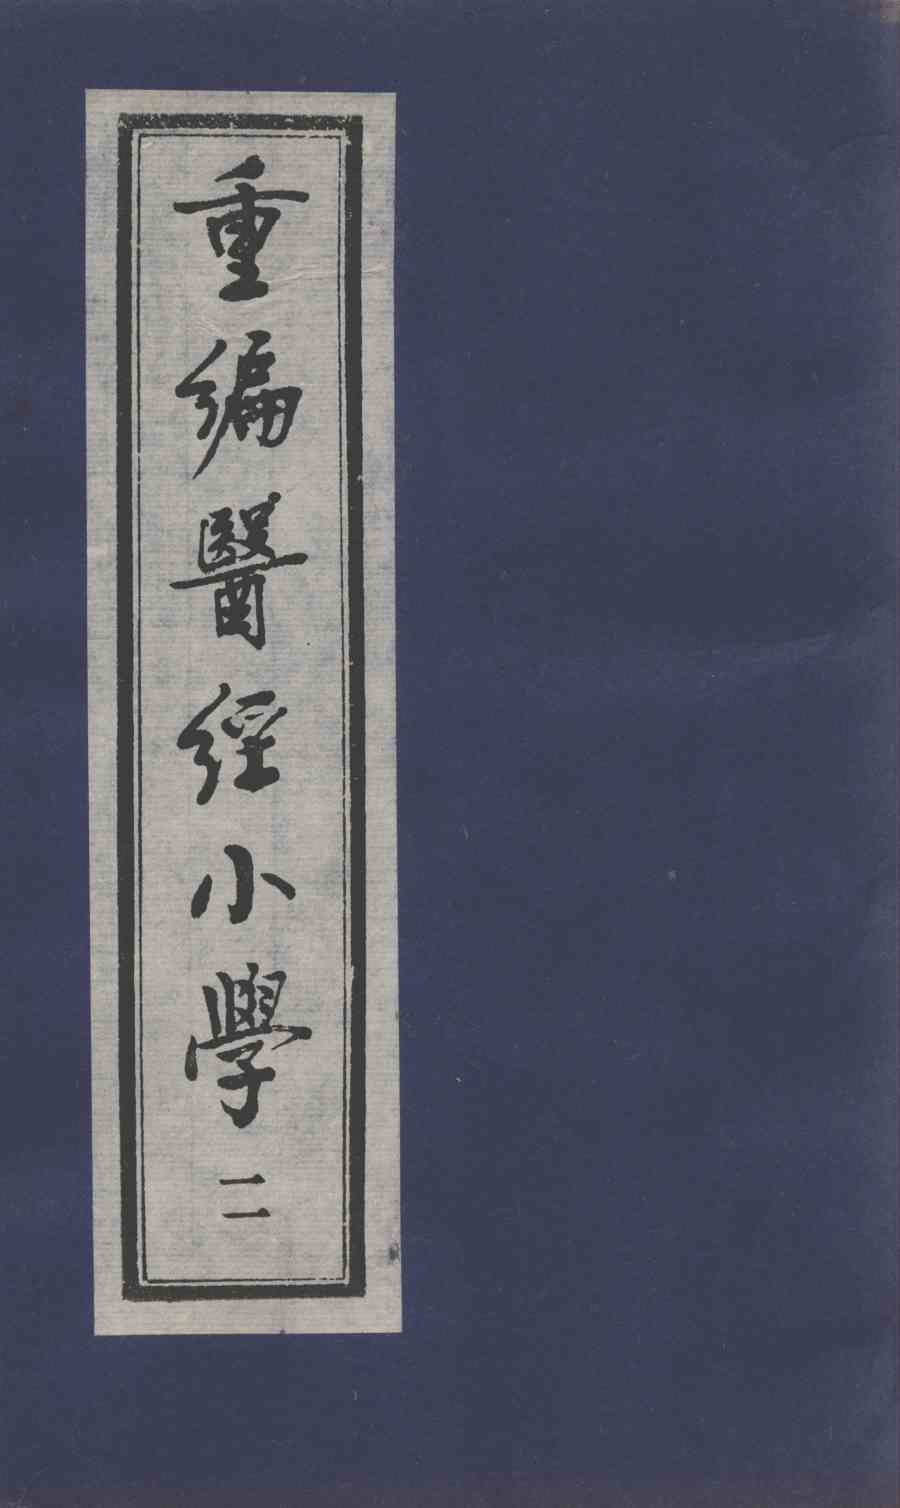 重編醫經小學 二